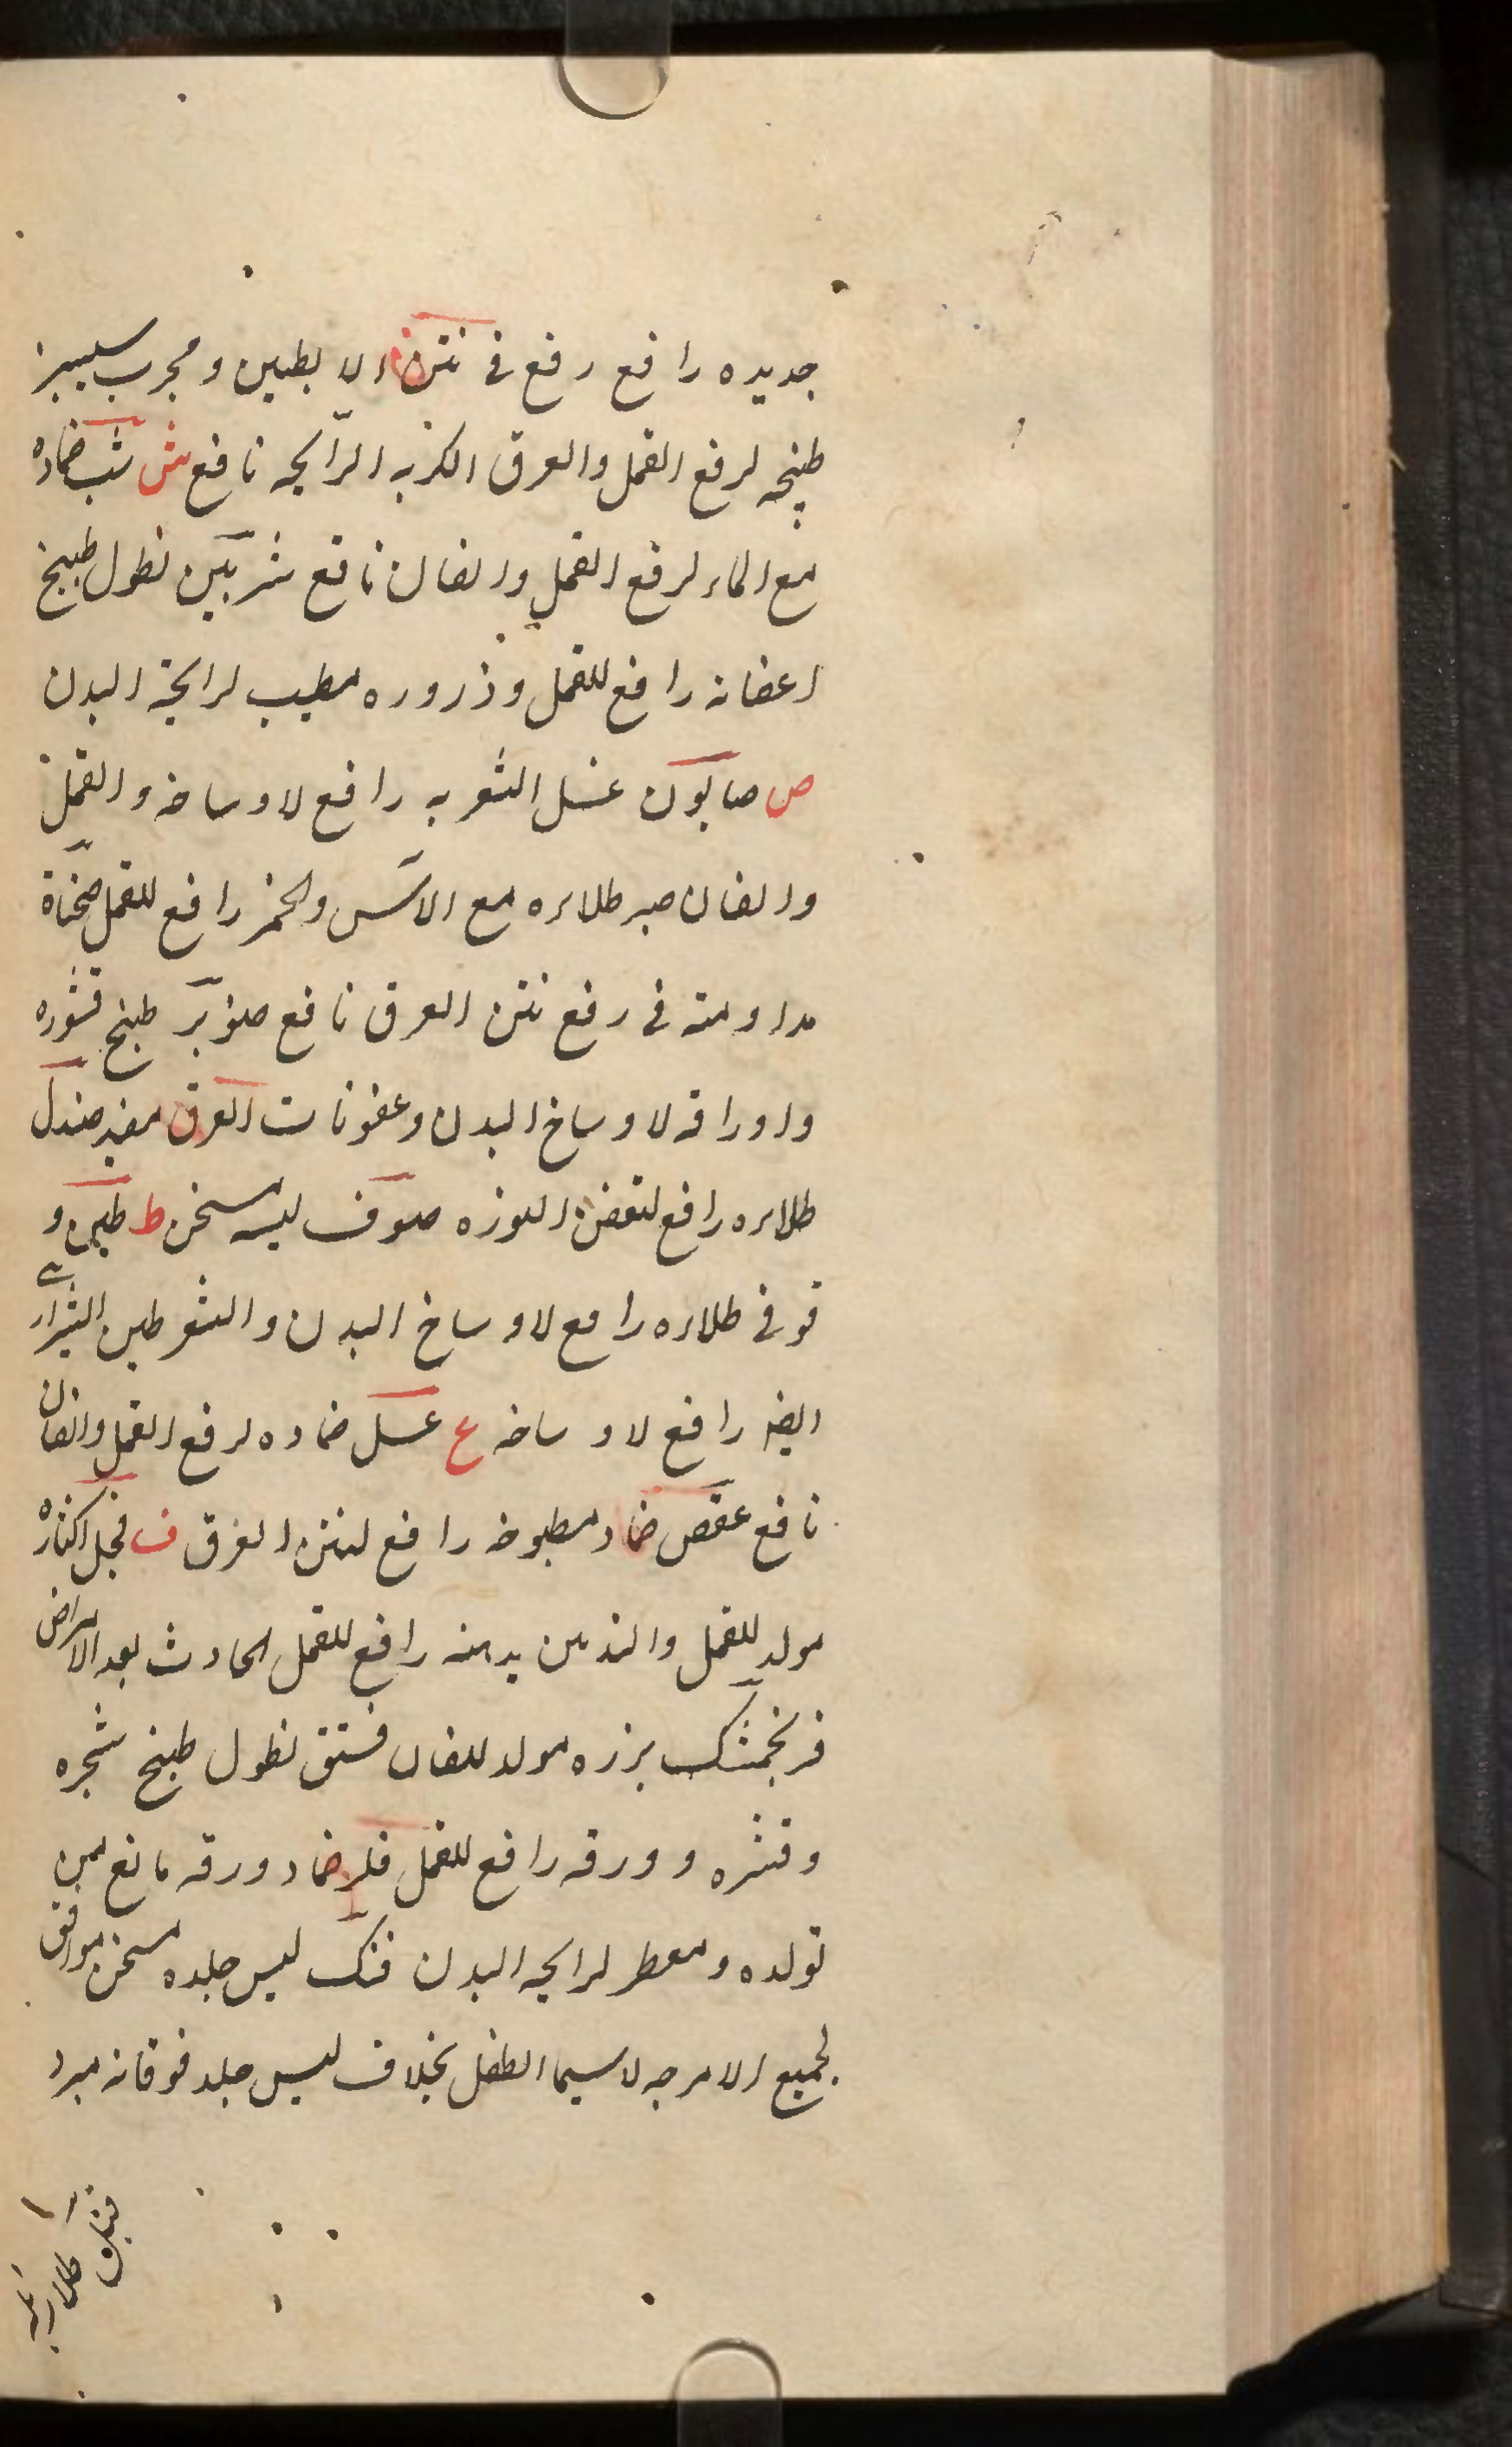 جدیده رافع رفع فی نتن الابطین و مجرب سیسبز
طبخه لرفع القمل والعرق الکریه الرّایحه نافع ش شب ضماده
مع الماء لرفع القمل والفان نافع شربین نطول طبیخ
اعضانه رافع للقمل وذروره مطیب لرایحة البدن
ص صابون غسل الشعر به رافع لاوساخه والقمل
والفان صبر طلاءه مع الآس والخمر رافع للقمل صحناة
مداومته فی رفع نتن العرق نافع صنوبر طبخ قشوره
واوراقه لاوساخ البدن وعفونات العرق مفید صندل
طلاءه رافع لتعفن النوره صوف لبسه مسخن ط طین و
قوفی طلاءه رافع لاوساخ البدن والشعر طین الشیرازی
ایضا رافع لاوساخه ع عسل ضماده لرفع القمل والفان
نافع عفص ضماد مطبوخه رافع لنتن العرق ف فجل اکثاره
مولد للقمل والتدهین بدهنه رافع للقمل الحادث بعد الامراض
فرنجمشک بزره مولد للفان فستق نطول طبخ شجره
وقشره وورقه رافع للقمل ضماد ورقه مانع من
تولده ومعطر لرایحه البدن فنک لبس جلده مسخن موافق
لجمیع الامزجه لاسیما الطفل بخلاف لبس جلد فوقانه مبرد